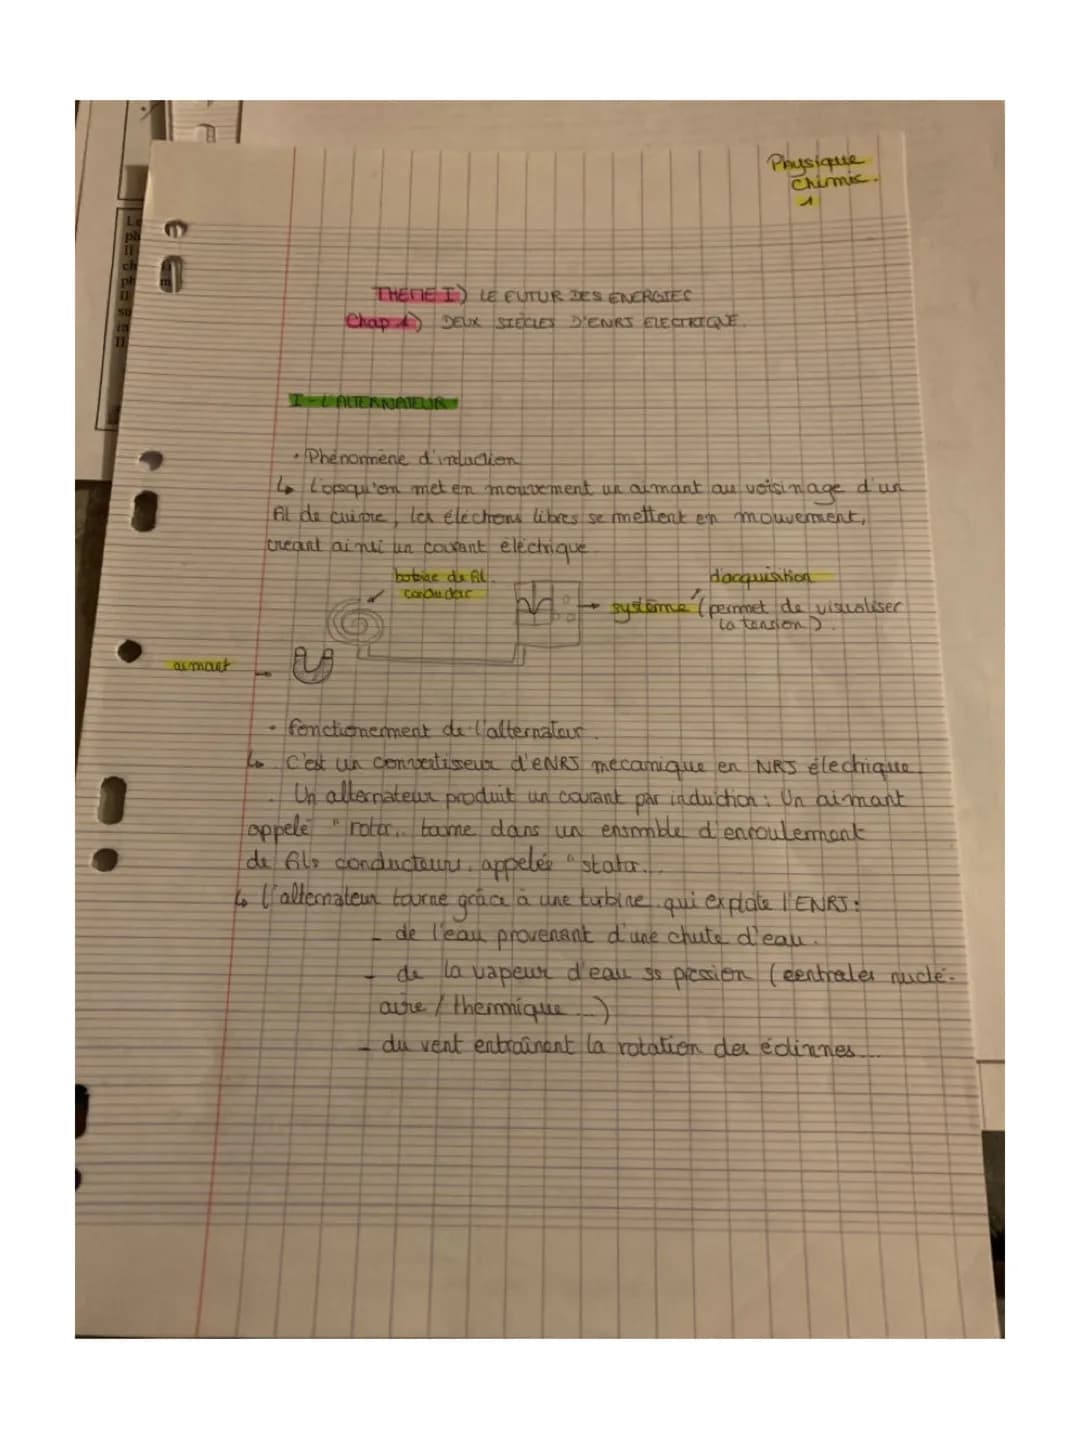 Physique
Chimie.
1
THEME I) LE FUTUR DES ENERGIES
Chap 1) DEUX SIECLES D'ENRJ ELECTRIQUE.
I - L'ALTERNATEUR
• Phénomène d'induction
↳ Lorsqu'on met en mouvement un aimant au voisinage d'un
fil de cuivre, les électrons libres se mettent en mouvement,
créant ainsi un courant électrique
bobine de fil
conducteur
d'acquisition
système (permet de visualiser
la tension).
aimant
• fonctionement de l'alternateur.
↳ C'est un convertiseur d'ENRJ mécanique en NRJ électrique.
Un alternateur produit un courant par induction : Un aimant
appelé "rotor" tourne dans un ensemble d'enroulement
de fils conducteurs appelés "stator"...
↳ L'alternateur tourne grâce à une turbine qui exploite l'ENRJ :
- de l'eau provenant d'une chute d'eau.
- de la vapeur d'eau ss pression (centrales nuclé-
aire / thermique ...)
- du vent entraînant la rotation des éoliennes...
Le
ph
II
ch
ph
II
su
in
II